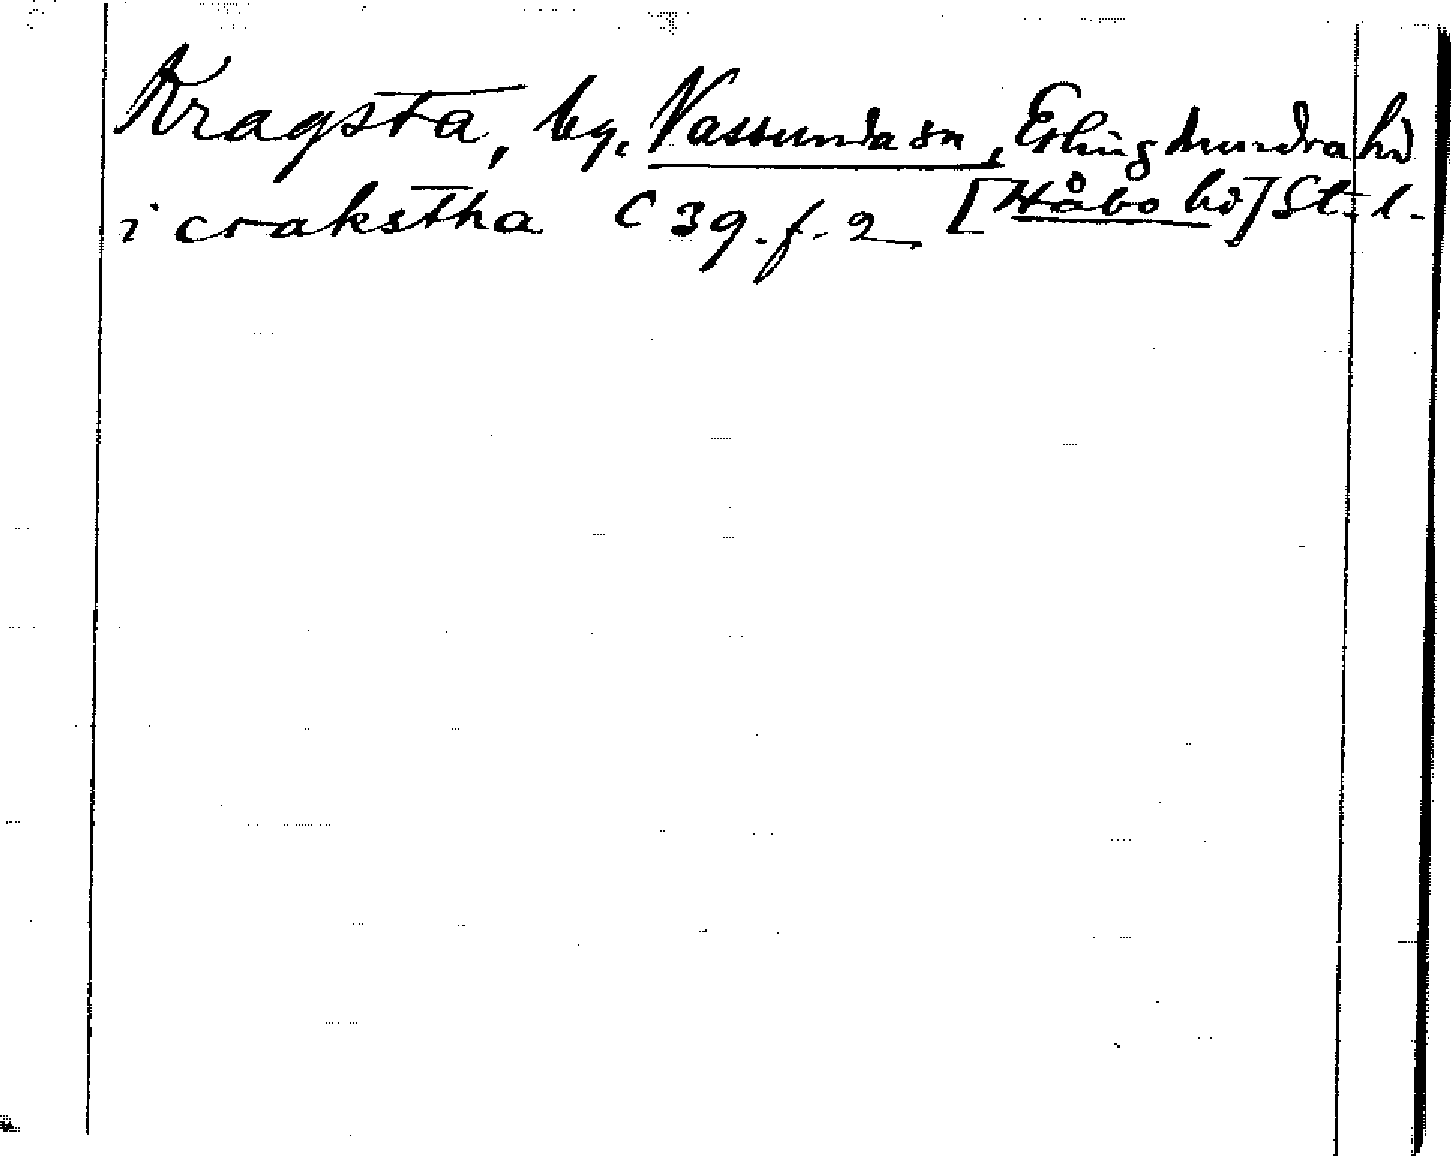 Kragsta, by, Vassunda sn, Erlinghundra hd
i crakstha C 39. f. 2 [Håbo hd] St. l.